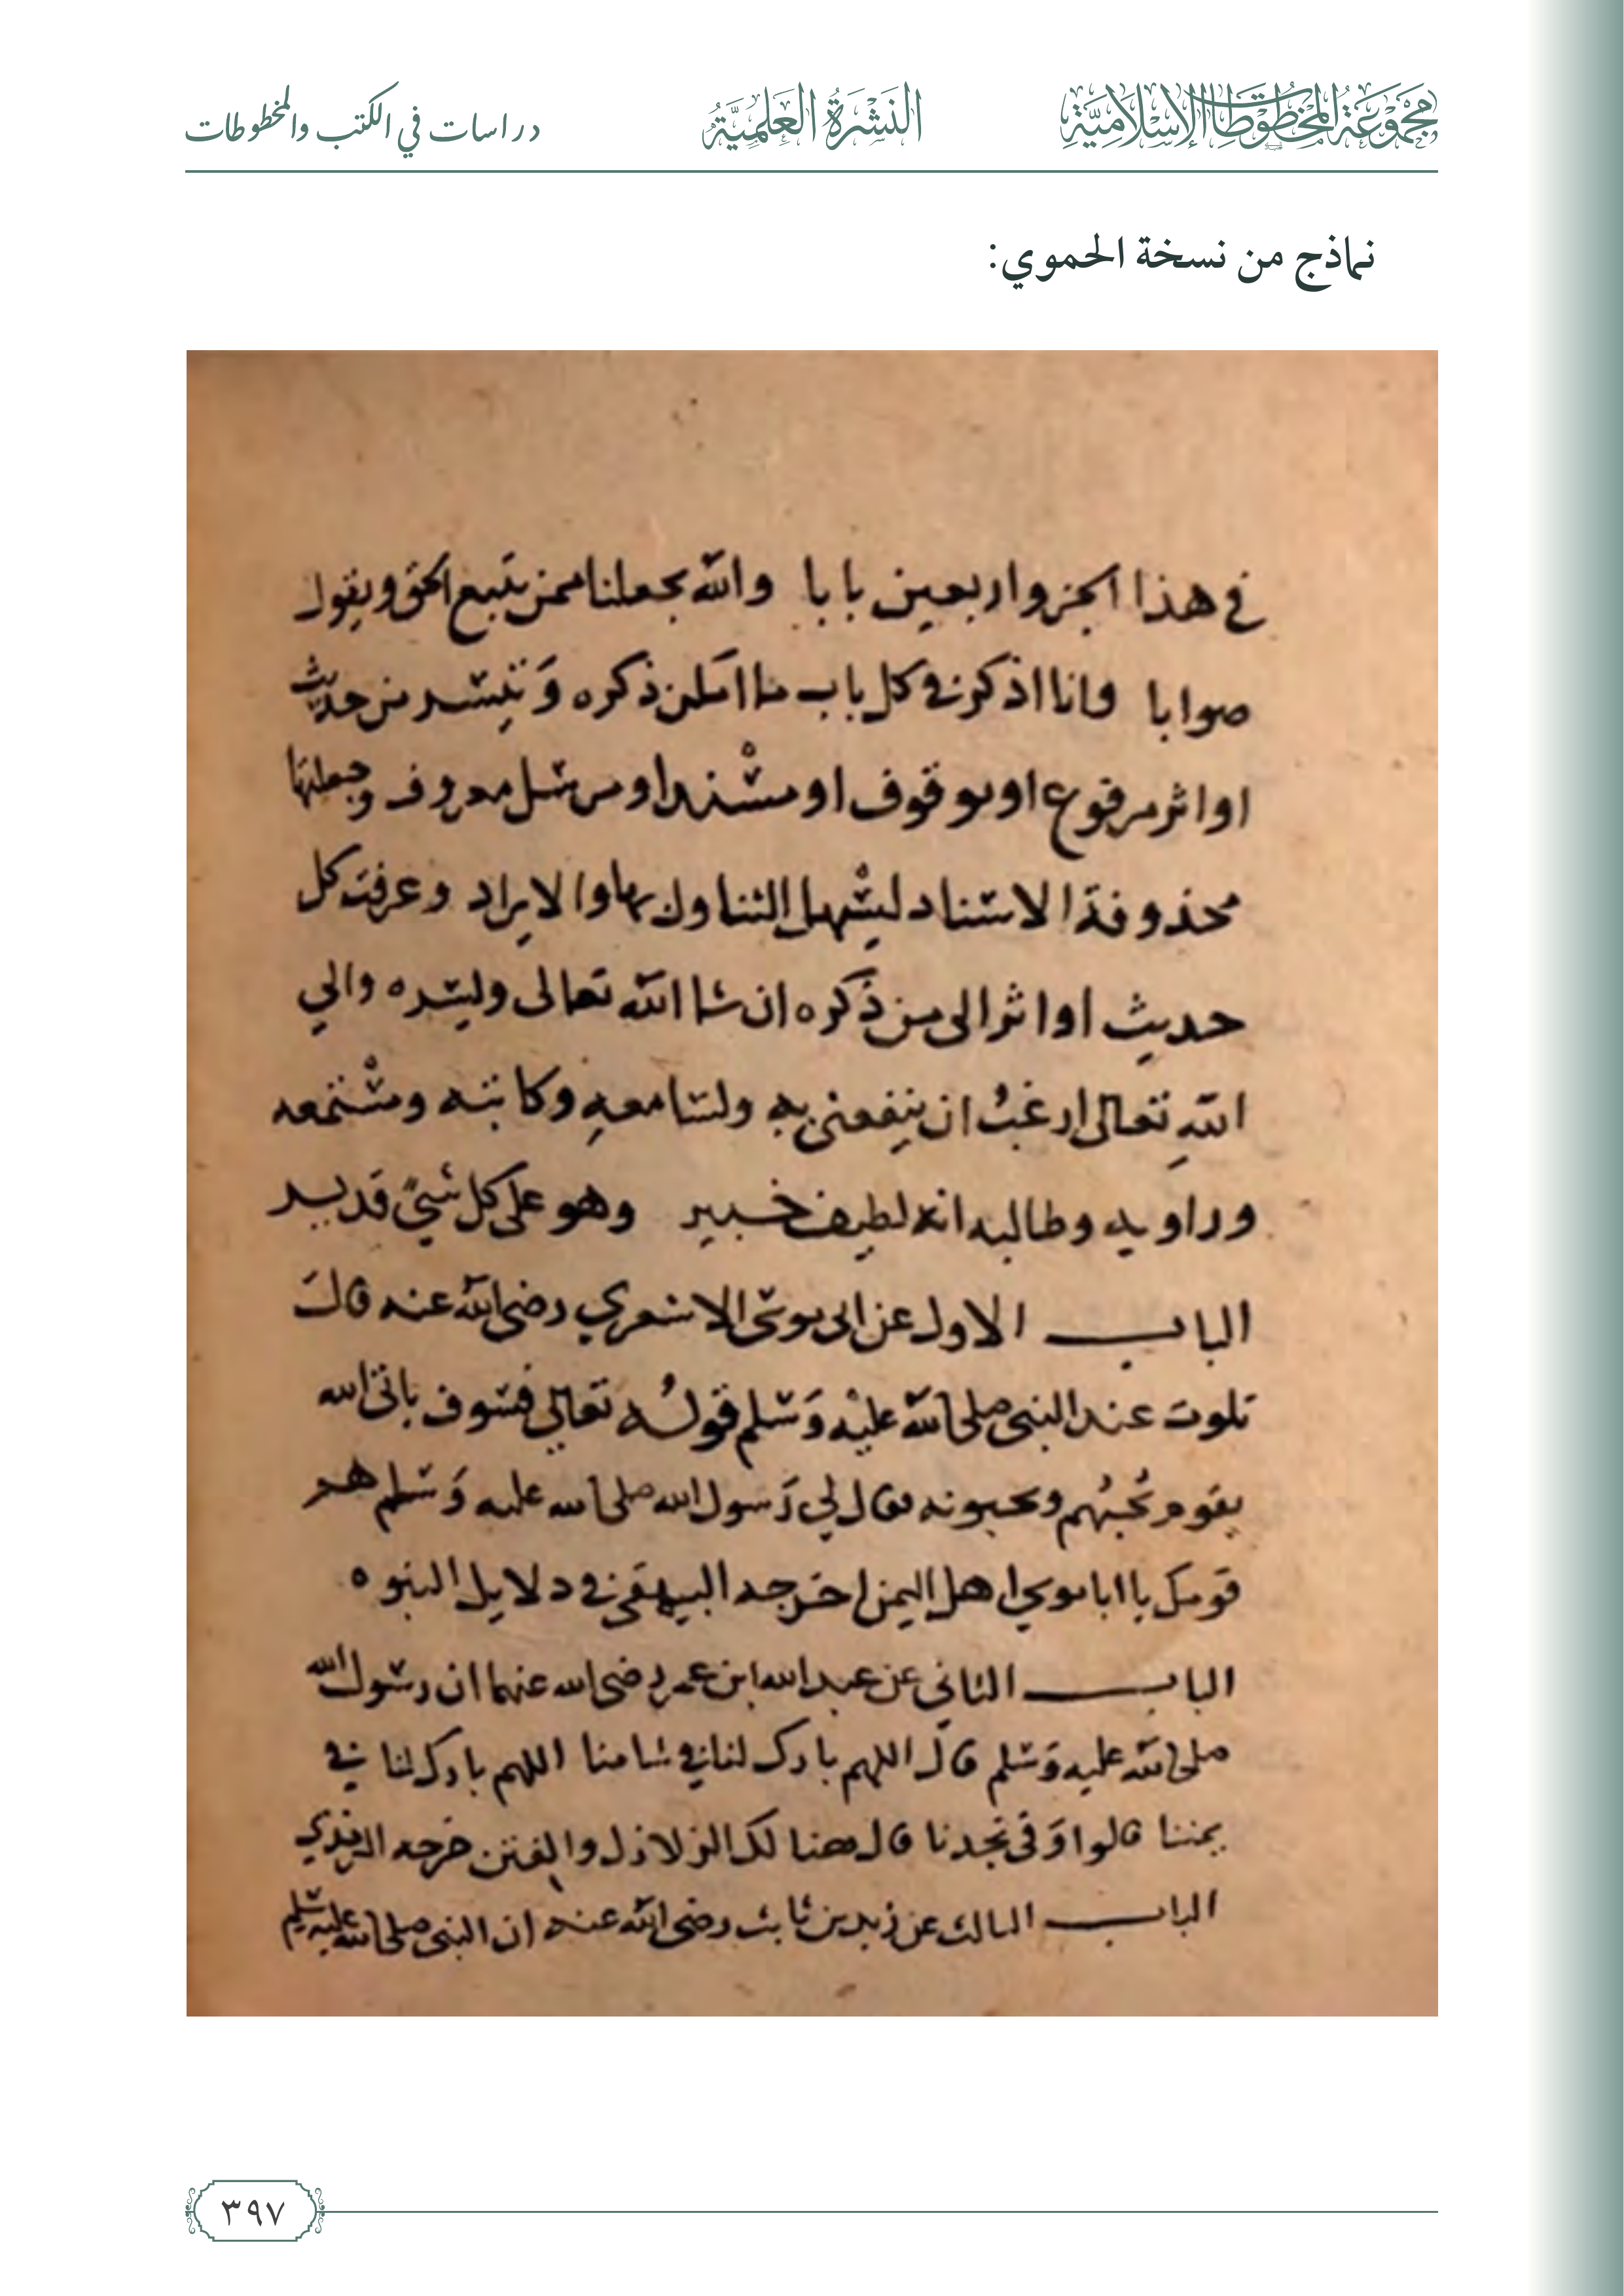 مجموعة المخطوطات الإسلامية
النشرة العلمية
دراسات في الكتب والمخطوطات
نماذج من نسخة الحموي:
في هذا الجزو اربعين بابا والله يجعلنا ممن يتبع الحق ويقول
صوابا وانا اذكر في كل باب ما امكن ذكره وتيسر من حديث
او اثر مرفوع او موقوف او مسند او مرسل معروف وجعلتها
محذوفة الاسناد ليسهل التناول بها والايراد وعرفت كل
حديث او اثر الى من ذكره ان شا الله تعالى وليسره والي
الله تعالى ارغب ان ينفعني به ولسامعه وكاتبه ومستمعه
وراويه وطالبه انه لطيف خبير وهو على كل شيء قدير
الباب الاول عن ابي موسى الاشعري رضي الله عنه قال
تلوت عند النبي صلى الله عليه وسلم قوله تعالى فسوف ياتي الله
بقوم يحبهم ويحبونه فقال لي رسول الله صلى الله عليه وسلم هم
قومك يا ابا موسي اهل اليمن اخرجه البيهقي في دلايل النبوه
الباب الثاني عن عبد الله ابن عمر رضي الله عنهما ان رسول الله
صلى الله عليه وسلم قال اللهم بارك لنا في شامنا اللهم بارك لنا في
يمننا قالوا وفي نجدنا قال هنا لك الزلازل والفتن خرجه الترمذي
الباب الثالث عن زيد بن ثابت رضي الله عنه ان النبي صلى الله عليه وسلم
٣٩٧